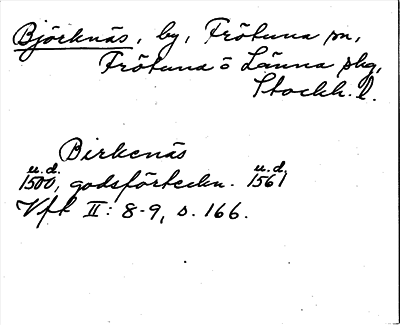 Björknäs, by, Frötuna sn,
Frötuna o Länna skg,
Stockh. l.
Birkenäs
u.d. u.d.
1500, godsförteckn. 1561
Vft II: 8-9, s. 166.